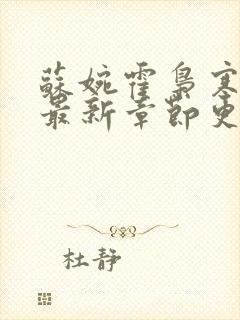 蘇婉霍梟寒
最新章節更
杜静